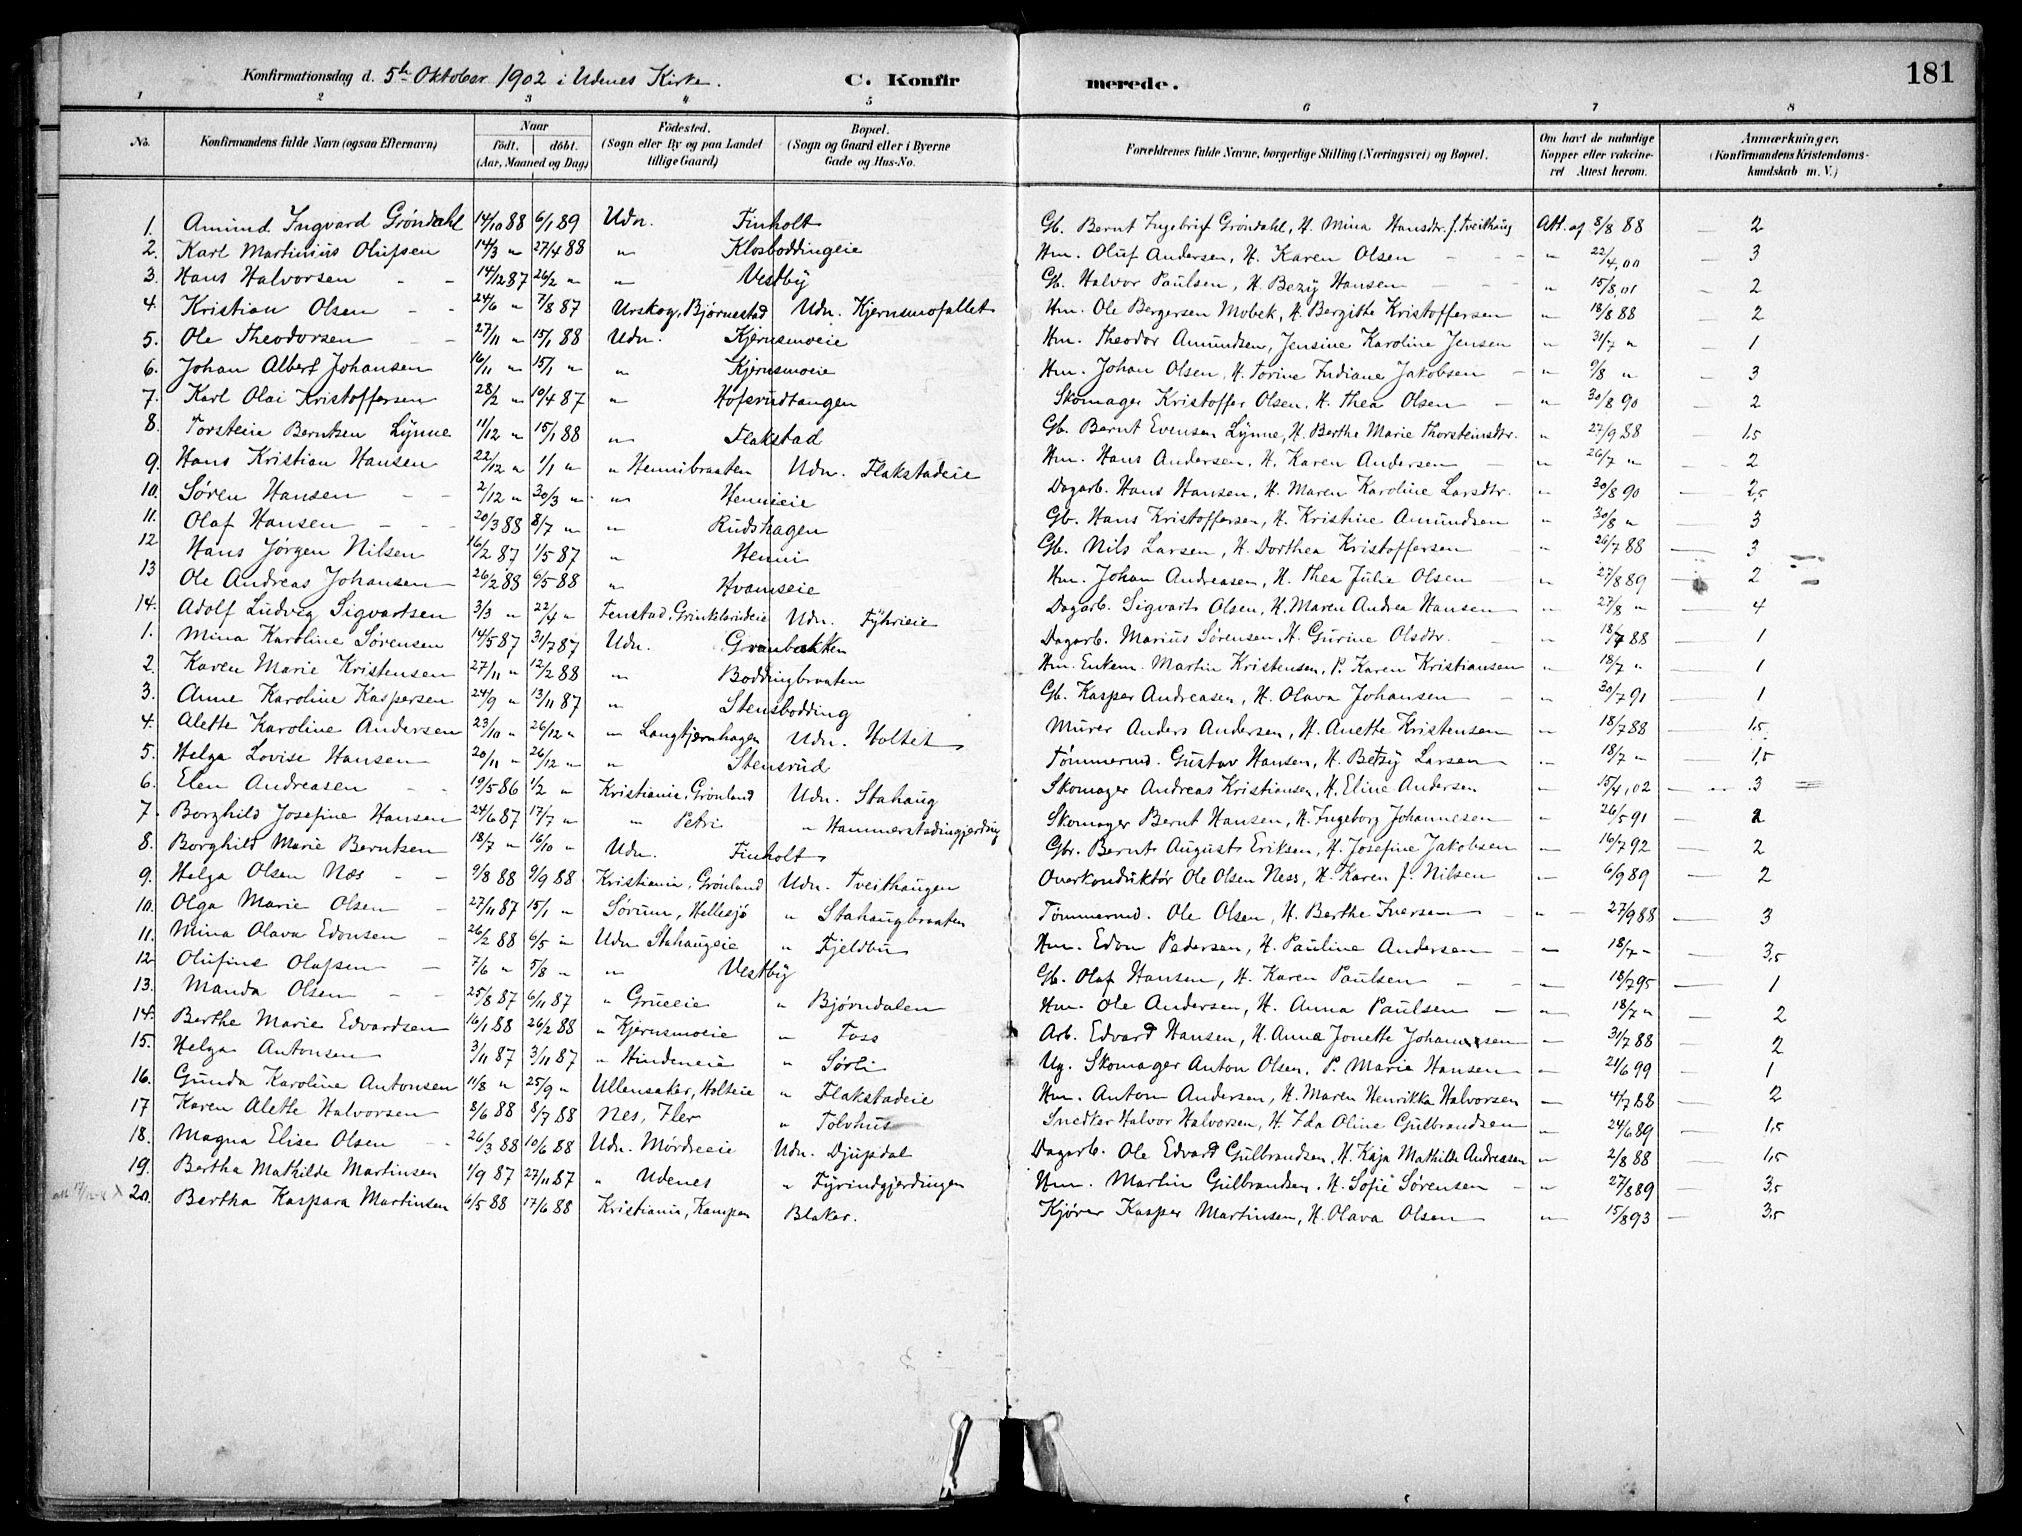 Konfirmationsdag d. 5te Oktober 1902 i Udenes Kirke. C. Konfirmerede. 181
1 2 3 4 5 6 7 8
No. Konfirmandens fulde Navn (ogsaa Efternavn) Naar födt. döbt. (Aar, Maaned og Dag) Födested. (Sogn eller By og paa Landet tillige Gaard) Bopæl. (Sogn og Gaard eller i Byerne Gade og Hus-No. Forældrenes fulde Navne, borgerlige Stilling (Næringsvei) og Bopæl. Om havt de naturlige Kopper eller vakcineret Attest herom. Anmærkninger. (Konfirmandens Kristendomskundskab m. V.)
1. Amund Ingvard Gröndahl 14/10 88 6/1 89 Udn. Finholt Gb. Bernt Ingebrigt Gröndahl, H. Mina Hansdtr. f. Tveithaug Att. af 8/8 88 2
2. Karl Martinius Olufsen 14/3 " 27/4 88 " Klosboddingeie Hm. Oluf Andersen, H. Karen Olsen " 22/4,00 3
3. Hans Halvorsen 14/12 87 26/2 " " Vestby Gb. Halvor Paulsen, H. Bezy Hansen " 15/8,01 2
4. Kristian Olsen 24/6 " 7/8 87 Urskog, Bjørnestad Udn. Kjernsmofallet Hm. Ole Bergersen Mobek, H. Bergitte Kristoffersen " 18/8 88 2
5. Ole Theodorsen 27/11 " 15/1 88 Udn. Kjernsmoeie Hm. Theodor Amundsen, Jensine Karoline Jensen " 31/7 " 1
6. Johan Albert Johansen 16/11 " 15/1 " " Kjernsmoeie Hm. Johan Olsen, H. Torine Indiane Jakobsen " 9/8 " 3
7. Karl Olai Kristoffersen 28/2 " 10/4 87 " Hofsrudtangen Skomager Kristoffer Olsen, H. Thea Olsen " 30/8 90 2
8. Torstein Berntsen Lynne 11/12 " 15/1 88 " Flakstad Gb. Bernt Evensen Lynne, H. Berthe Marie Thorsteinsdtr. " 27/9 88 1,5
9. Hans Kristian Hansen 22/12 " 1/1 " " Hennibraaten Udn. Flakstadeie Hm. Hans Andersen, H. Karen Andersen " 26/7 " 2
10. Søren Hansen 2/12 " 30/3 " " Hennieie Dagarb. Hans Hansen, H. Maren Karoline Larsdtr. " 30/8 90 2,5
11. Olaf Hansen 20/3 88 8/7 " " Rudshagen Gb. Hans Kristoffersen, H. Kristine Amundsen " 30/8 " 3
12 Hans Jørgen Nilsen 16/2 87 1/5 87 " Henni Gb. Nils Larsen, H. Dorthea Kristoffersen " 26/7 88 3
13 Ole Andreas Johansen 26/2 88 6/5 88 " Hvamseie Hm. Johan Andreasen, H. Thea Julie Olsen " 27/8 89 2
14. Adolf Ludvig Sigvartsen 3/3 " 22/4 " Fenstad, Grinkelsrudeie Udn. Fyhrieie Dagarb. Sigvart Olsen, H. Maren Andrea Hansen " 27/8 " 4
1. Mina Karoline Sørensen 14/5 87 31/7 87 Udn. Granbakken Dagarb. Marius Sørensen, H. Gurine Olsdtr. " 18/7 88 1
2. Karen Marie Kristensen 27/11 " 12/2 88 " Boddingbraaten Hm. Enkem. Martin Kristensen, P. Karen Kristiansen " 18/7 " 1
3. Anne Karoline Kaspersen 24/9 " 13/11 87 " Stensbodding Gb. Kasper Andreasen, H. Olava Johansen " 30/7 91 1
4. Alette Karoline Andersen 23/10 " 26/12 " " Langtjernhagen Udn. Holtet Murer Anders Andersen, H. Anette Kristensen " 18/7 88 1,5
5. Helga Lovise Hansen 20/11 " 26/12 " " Stensrud Tømmermd. Gustav Hansen, H. Betzy Larsen " 18/7 " 1,5
6. Elen Andreasen 19/5 86 1/2 " Kristiania, Grønland Udn. Stahaug Skomager Andreas Kristiansen, H. Eline Andersen " 15/4,02 3
7. Borghild Josefine Hansen 24/6 87 17/7 " " Petri " Hammerstadingjerding Skomager Bernt Hansen, H. Ingeborg Johannesen " 26/5 91 2
8. Borghild Marie Berntsen 18/7 " 16/10 " Udn. Finholt Gbr. Bernt August Eriksen, H. Josefine Jakobsen " 16/7 92 2
9. Helga Olsen Næs 9/8 88 9/9 88 Kristiania, Grønland Udn. Tveithaugen Overkonduktør Ole Olsen Ness, H. Karen f. Nilsen " 6/9 89 2
10. Olga Marie Olsen 27/11 87 15/1 " Sørum, Hellesjø " Stahaugbraaten Tømmermd. Ole Olsen, H. Berthe Iversen " 27/9 88 3
11. Mina Olava Edonsen 26/2 88 6/5 " Udn Stahaugeie " Fjeldbu Hm. Edon Pedersen, H. Pauline Andersen " 18/7 " 3,5
12 Olufine Olafsen 7/6 " 5/8 " " Vestby Gb. Olaf Hansen, H. Karen Paulsen " 18/7 95 1
13. Manda Olsen 25/8 87 6/11 87 " Grueeie " Bjørndalen Hm. Ole Andersen, H. Anna Paulsen " 18/7 " 2
14. Berthe Marie Edvardsen 16/1 88 26/2 88 " Kjernsmoeie " Foss Arb. Edvard Hansen, H. Anna Jonette Johansen " 31/7 88 2
15. Helga Antonsen 3/11 87 3/11 87 " Hindeneie " Sørli Ug. Skomager Anton Olsen, P. Marie Hansen " 21/6 99 1
16. Gunda Karoline Antonsen 11/8 " 25/9 " Ullensaker, Holteie " Flakstadeie Hm. Anton Andersen, H. Maren Henrikka Halvorsen " 4/7 88 2
17 Karen Alette Halvorsen 8/6 88 8/7 88 Nes, Fler " Tolvhus Snedker Halvor Halvorsen, H. Ida Oline Gulbrandsen " 24/6 89 1,5
18. Magna Elise Olsen 26/3 88 10/6 88 Udn. Mördreeie Udn. Djupdal Dagarb. Ole Edvard Gulbrandsen, H. Kaja Mathilde Andreasen " 2/8 88 1,5
19. Bertha Mathilde Martinsen 1/9 87 27/11 87 " Udenes " Fyrindgjerdingen Hm. Martin Gulbrandsen, H. Sofie Sørensen " 27/8 89 3,5
20. Bertha Kaspara Martinsen 6/5 88 17/6 88 Kristiania, Kampen Blaker. Kjører Kasper Martinsen, H. Olava Olsen " 15/8 93 3,5